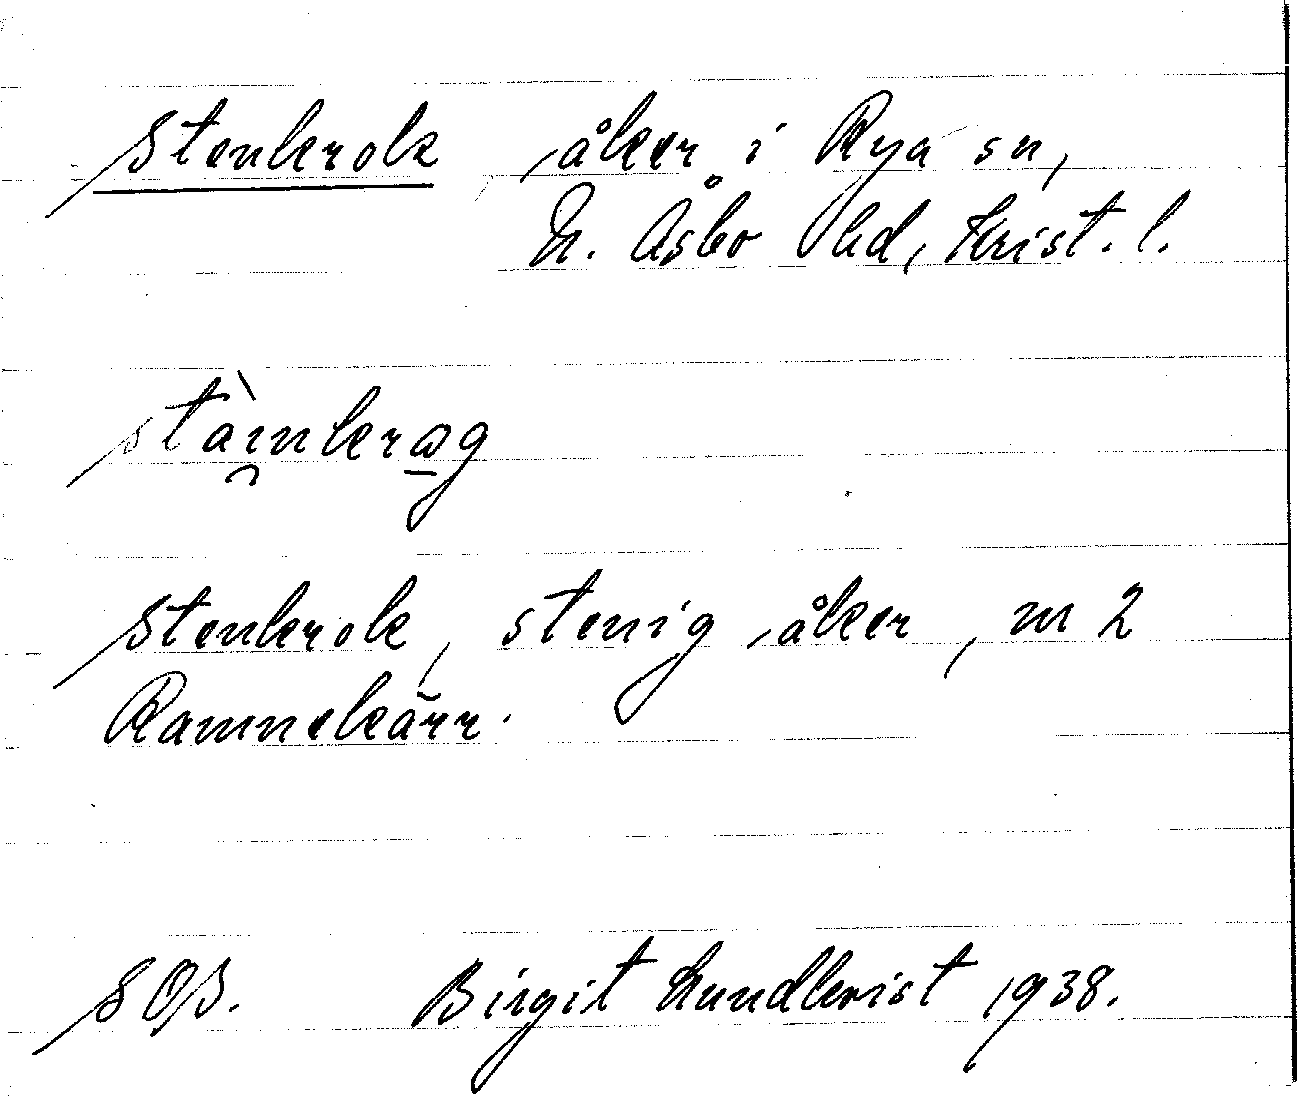 Stenkrok åker i Rya sn,
N. Åsbo hd, Krist. l.
stàinkrag
Stenkrok, stenig åker, m 2
Ramnekärr.
SOB. Birgit Lundkvist 1938.